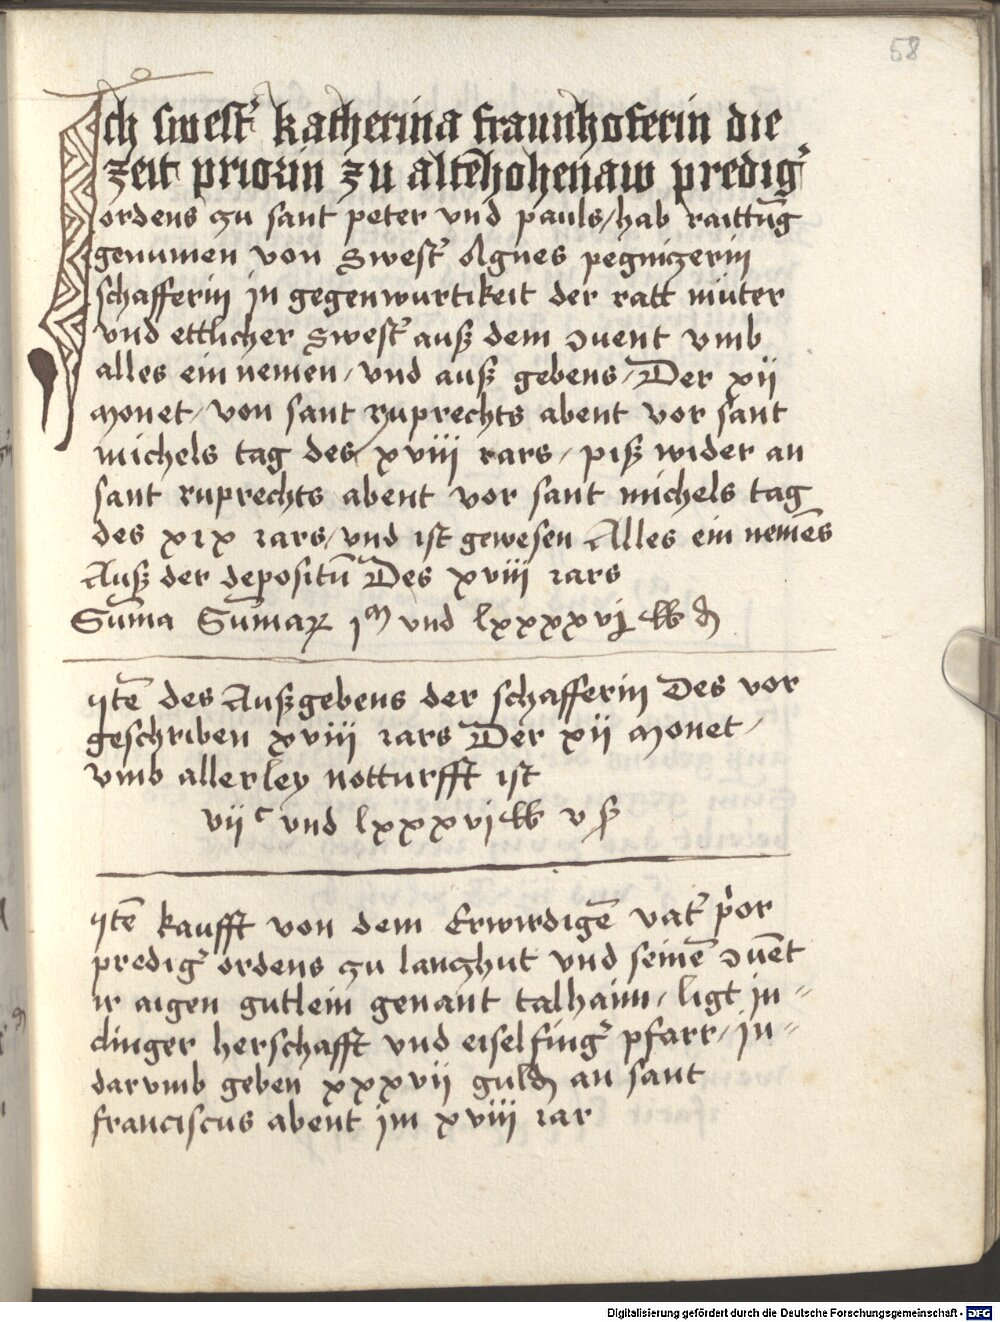 58
Ich swest' katherina fraunhoferin die
zeit priorin zu altēhohenaw predig'
ordens zu sant peter vnd pauls/hab raittūg
genumen von Swest' Agnes pegniczerin
schafferin jn gegenwurtikeit der ratt muter
vnd ettlicher Swest' auß dem ɔuent vmb
alles ein nemen/vnd auß gebens/Der xii
monet/von sant ruprechts abent vor sant
michels tag des xviii iars/piß wider an
sant ruprechts abent vor sant michels tag
des xix iars/vnd ist gewesen Alles ein nemēs
Auß der depositū Des xviii iars
Sūma Sūmaꝝ jᵐ vnd lxxxxvj ℔ ₰
jtē des Außgebens der schafferin Des vor
geschriben xviii iars Der xii monet/
vmb allerley notturfft ist
viiᶜ vnd lxxxvj ℔ v ß
jtē kaufft von dem Erwirdigē vat' p'or
predig' ordens zu lanczhut vnd seinē ɔuēt
ir aigen gutlein genant talhaim/ligt jn=
clinger herschafft vnd eiselfing' pfarr/jn=
darvmb geben xxxvii guldȷ̄ an sant
franciscus abent jm xviii iar
Digitalisierung gefördert durch die Deutsche Forschungsgemeinschaft - DFG